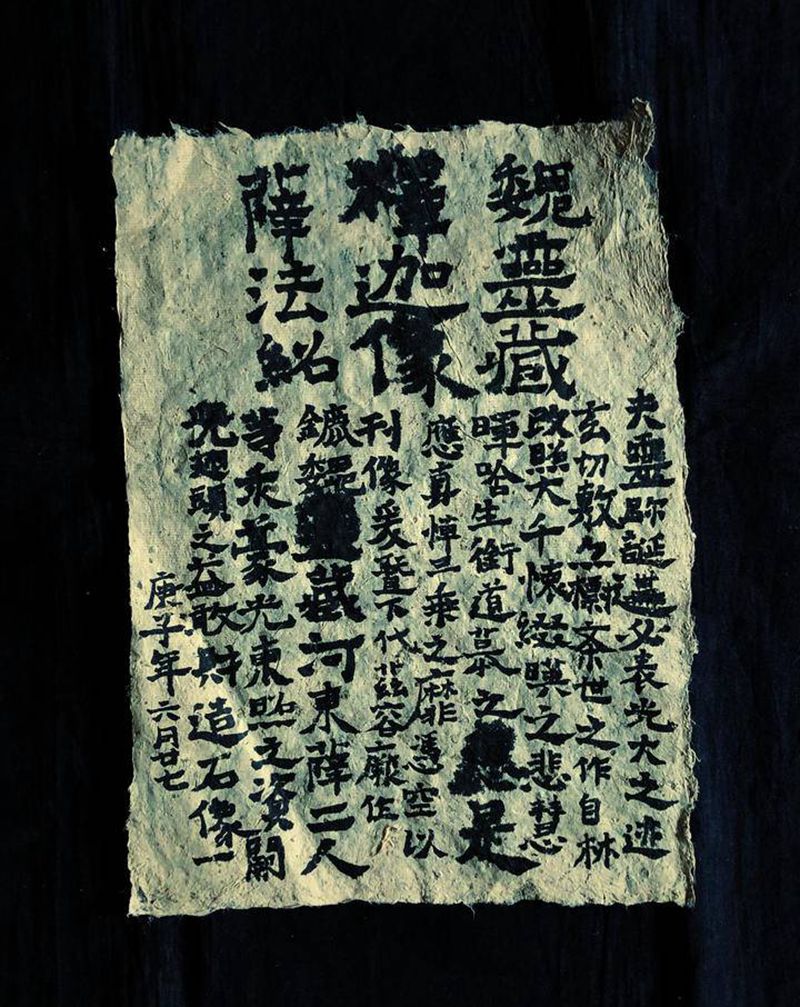 魏靈藏
釋迦像
薛法紹
夫靈跡誕遘必表光大之迹
玄功敷亦標希世之作自林
改照大千懷綴暎之悲慧
暉唅生銜道慕之是
應真悼三乘之靡憑空以
刊像爰暨下代茲容厥作
魏靈藏河東薛二人
等求豪光東照之資闕
兜翅頭之益敢財造石像一
庚子年六月廿七